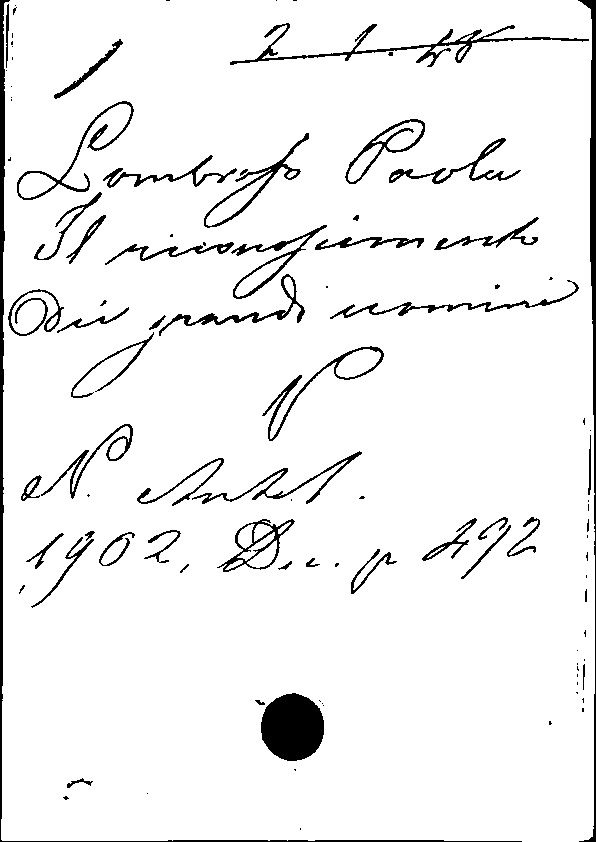 2 1.48
Lombroso Paola
Il riconoscimento
Dei grandi uomini
N
N. Antol.
1902, Dec. p 492